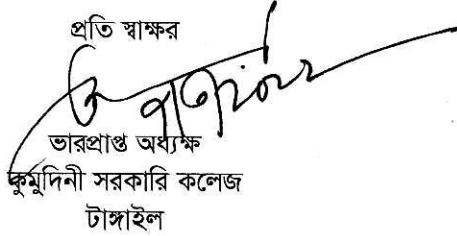 প্রতি স্বাক্ষর
ভারপ্রাপ্ত অধ্যক্ষ
কুমুদিনী সরকারি কলেজ
টাঙ্গাইল